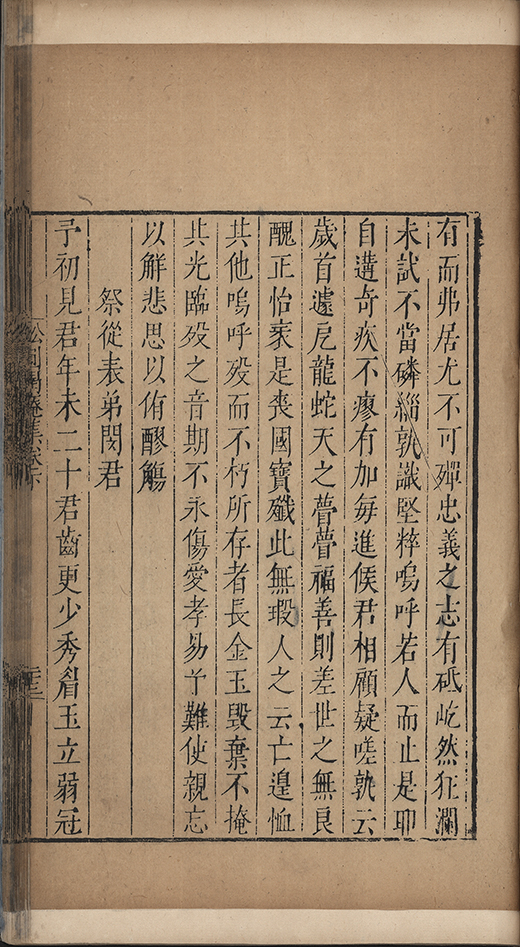 有而弗居尤不可殫忠義之志有砥屹然狂瀾
未試不當磷緇孰識堅粹嗚呼若人而止是耶
自遘奇疾不瘳有加每進候君相顧疑嗟孰云
歲首遽戹龍蛇天之瞢瞢福善則差世之無良
醜正怡衺是喪國寶殲此無瑕人之云亡遑恤
其他嗚呼歿而不朽所存者長金玉毀棄不掩
其光臨歿之音期不永傷愛孝易予難使親忘
以解悲思以侑醪觴
祭從表弟閔君
予初見君年未二十君齒更少秀眉玉立弱冠
松圓偈庵集卷下
二十三